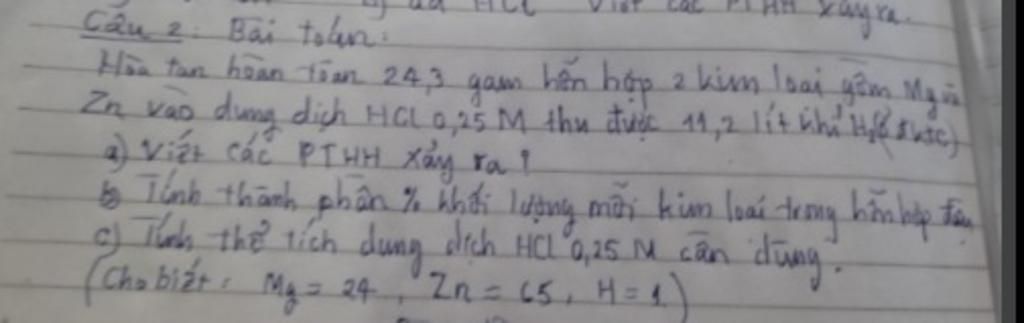 HCl Viết các PTHH xảy ra.
Câu 2: Bài toán:
Hòa tan hoàn toàn 24,3 gam hỗn hợp 2 kim loại gồm Mg và
Zn vào dung dịch HCl 0,25 M thu được 11,2 lít khí H₂ (ở đktc)
a) Viết các PTHH xảy ra?
b) Tính thành phần % khối lượng mỗi kim loại trong hỗn hợp đầu
c) Tính thể tích dung dịch HCl 0,25 M cần dùng.
(Cho biết: Mg = 24, Zn = 65, H = 1)